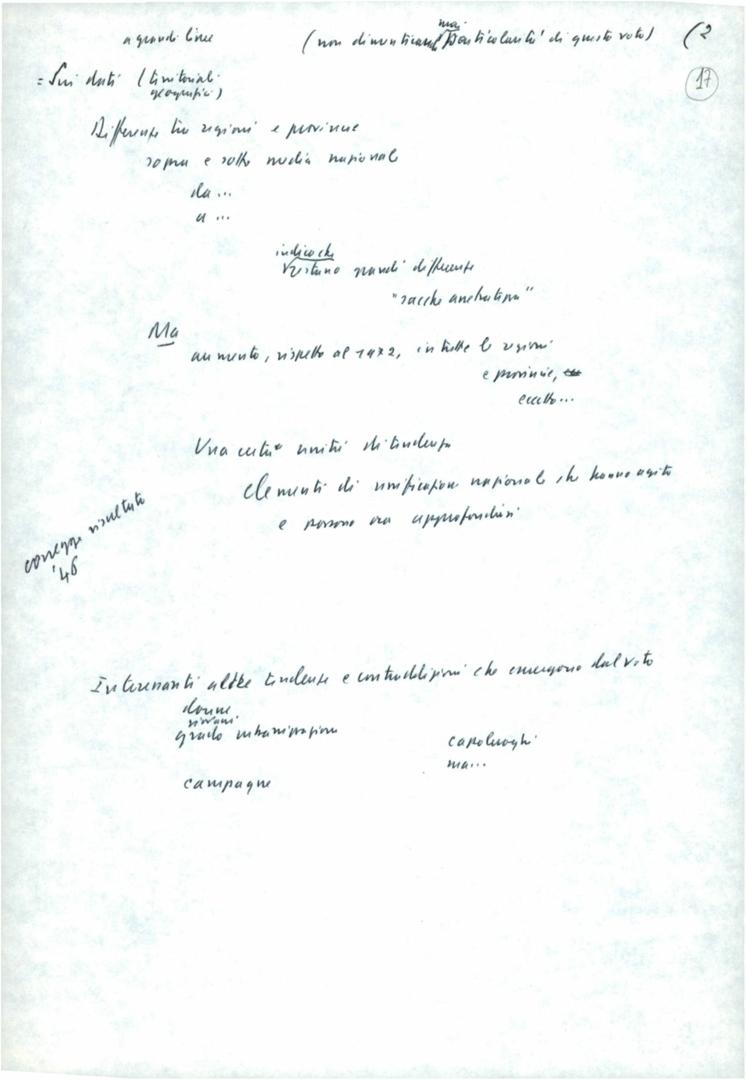 a grandi linee (non dimenticare mai particolarità di questo voto) (2
17
= Sui dati (territoriali
geografici)
Differenze tra regioni e province
sopra e sotto media nazionale
da ...
a ...
indico che
restano grandi differenze
"sacche
Ma
aumento, rispetto al 1972, in tutte le regioni
e provincie,
eccetto...
Una certa unità di tendenza
Elementi di unificazione nazionale che hanno agito
e possono ora approfondirsi
corregge risultato
'46
Interessanti altre tendenze e contraddizioni che emergono dal voto
donne
giovani
grado urbanizzazione
capoluoghi
ma...
campagne